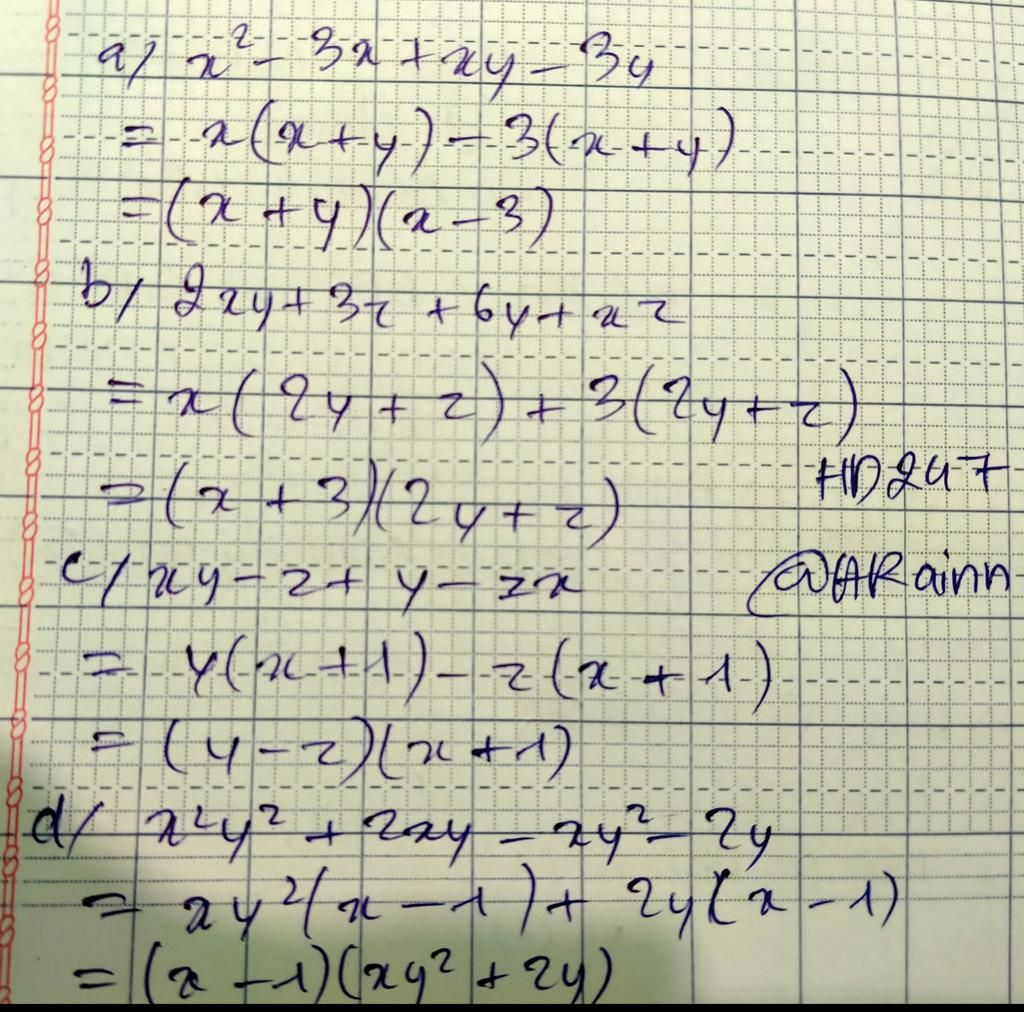 a/ x² - 3x + xy - 3y
= x(x + y) - 3(x + y)
= (x + y)(x - 3)
b/ 2xy + 3z + 6y + xz
= x(2y + z) + 3(2y + z)
HD247
= (x + 3)(2y + z)
c/ xy - z + y - zx
@ARainn
= y(x + 1) - z(x + 1)
= (y - z)(x + 1)
d/ x²y² + 2xy - xy² - 2y
= xy²(x - 1) + 2y(x - 1)
= (x - 1)(xy² + 2y)